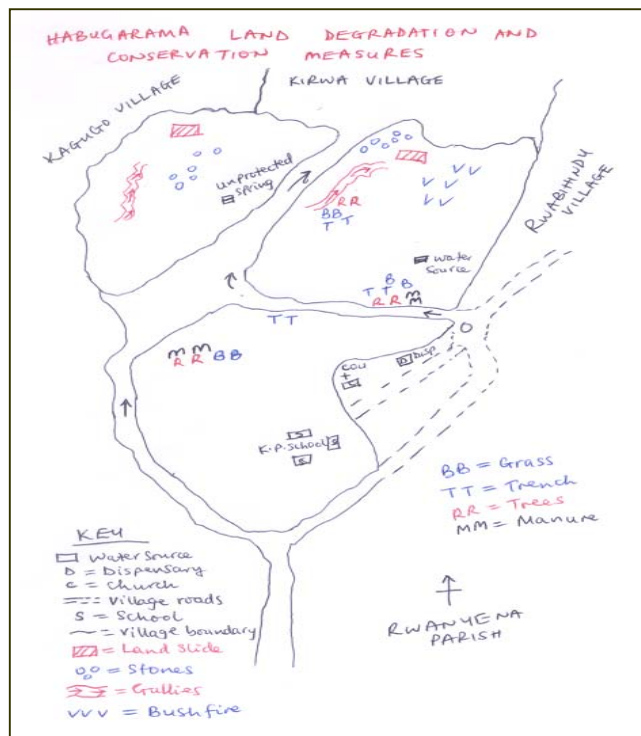 HABUGARAMA LAND DEGRADATION AND
CONSERVATION MEASURES
KAGUGO VILLAGE
KIRWA VILLAGE
RWABIHINDY VILLAGE
unprotected
spring
RR
BB
T T
water
source
B B
T T
RR
M
M
T T
M M
R R
BB
COU
+
S
D
Disp
O
S
K.P. School
S
S
BB = Grass
TT = Trench
RR = Trees
MM = Manure
KEY
Water Source
D = Dispensary
C = Church
= Village roads
S = School
= Village boundary
= Land Slide
= Stones
= Gullies
VVV = Bushfire
RWANYENA
PARISH